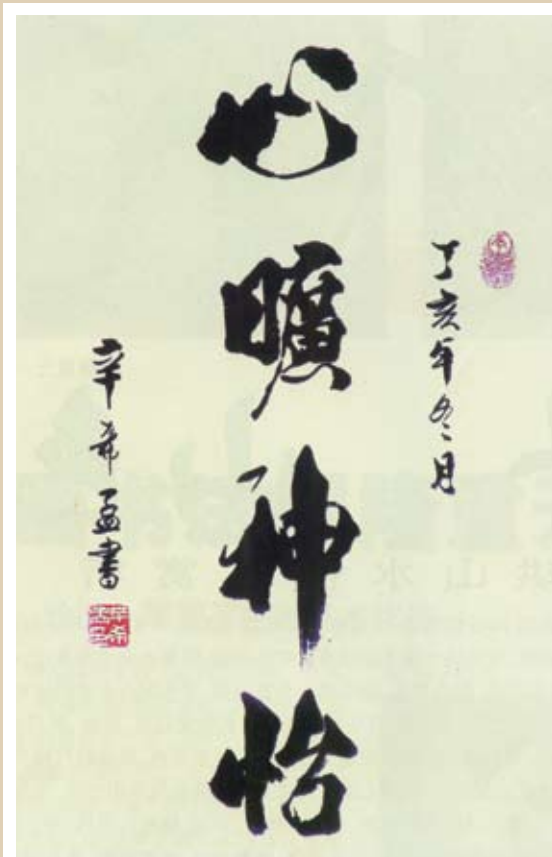 丁亥年冬月
心曠神怡
辛希孟書